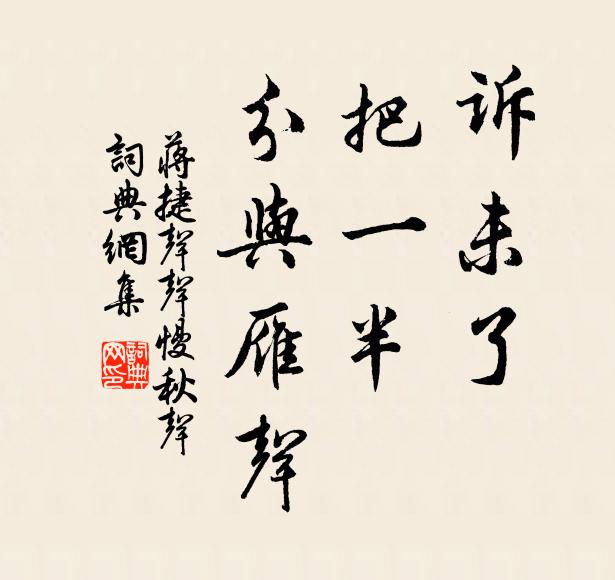 訴未了
把一半
分與雁聲
蔣捷聲聲慢秋聲
詞典網集
詞典網印